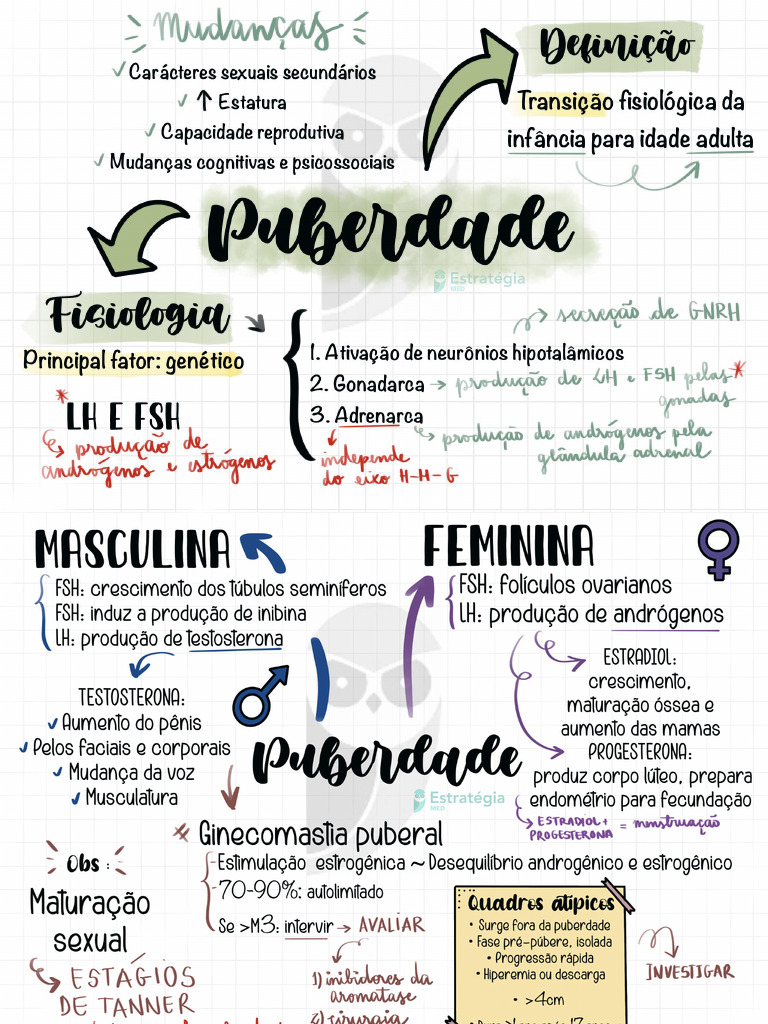 Mudanças
Carácteres sexuais secundários
↑ Estatura
Capacidade reprodutiva
Mudanças cognitivas e psicossociais
Definição
Transição fisiológica da
infância para idade adulta
Puberdade
Estratégia
MED
Fisiologia
Principal fator: genético
*
LH E FSH
produção de
andrógenos e estrógenos
secreção de GNRH
1. Ativação de neurônios hipotalâmicos
2. Gonadarca → produção de LH e FSH pelas *
gonadas
3. Adrenarca
produção de andrógenos pela
glândula adrenal
independe
do eixo H-H-G
MASCULINA
FSH: crescimento dos túbulos seminíferos
FSH: induz a produção de inibina
LH: produção de testosterona
TESTOSTERONA:
Aumento do pênis
Pelos faciais e corporais
Mudança da voz
Musculatura
FEMININA
FSH: folículos ovarianos
LH: produção de andrógenos
ESTRADIOL:
crescimento,
maturação óssea e
aumento das mamas
PROGESTERONA:
produz corpo lúteo, prepara
endométrio para fecundação
ESTRADIOL +
PROGESTERONA = menstruação
Puberdade
Estratégia
MED
* Ginecomastia puberal
-Estimulação estrogênica ~ Desequilíbrio androgênico e estrogênico
-70-90%: autolimitado
Se >M3: intervir → AVALIAR
1) inibidores da
aromatase
2) cirurgia
Obs:
Maturação
sexual
ESTÁGIOS
DE TANNER
Quadros atípicos
• Surge fora da puberdade
• Fase pré-púbere, isolada
• Progressão rápida
• Hiperemia ou descarga
• >4cm
INVESTIGAR